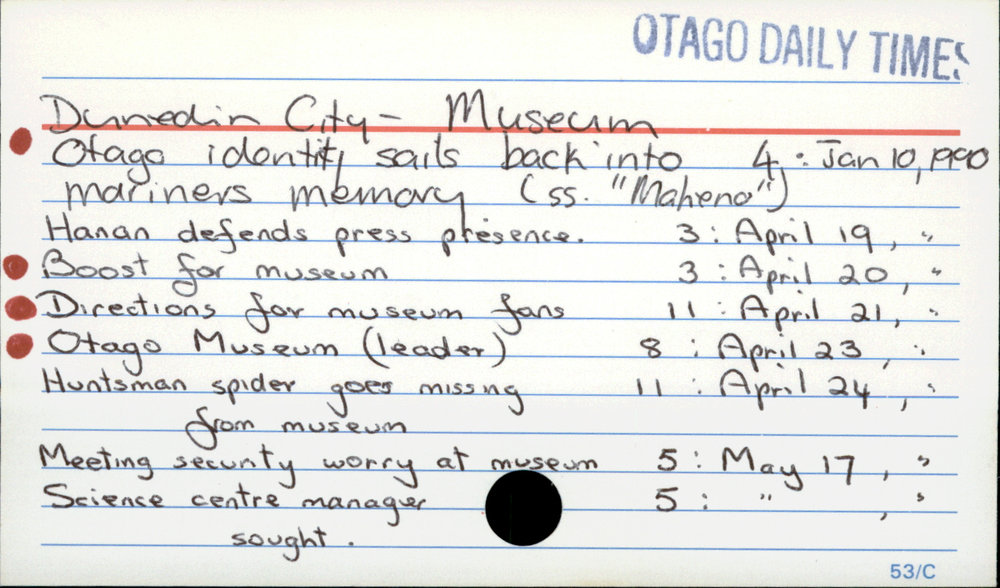 OTAGO DAILY TIMES
Dunedin City - Museum
Otago identity sails back into 4 : Jan 10, 1990
mariners memory (ss. "Maheno")
Hanan defends press presence. 3 : April 19, "
Boost for museum 3 : April 20, "
Directions for museum fans 11 : April 21, "
Otago Museum (leader) 8 : April 23, "
Huntsman spider goes missing 11 : April 24, "
from museum
Meeting security worry at museum 5 : May 17, "
Science centre manager 5 : " , "
sought.
53/C